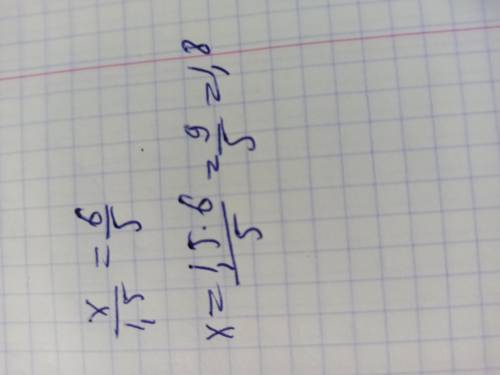 x/1,5 = 6/5
x = 1,5·6/5 = 9/5 = 1,8